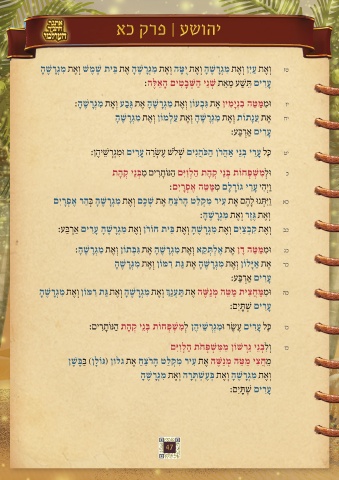 יהושע | פרק כא
טז וְאֶת עַיִן וְאֶת מִגְרָשֶׁהָ וְאֶת יֻטָּה וְאֶת מִגְרָשֶׁהָ אֶת בֵּית שֶׁמֶשׁ וְאֶת מִגְרָשֶׁהָ
עָרִים תֵּשַׁע מֵאֵת שְׁנֵי הַשְּׁבָטִים הָאֵלֶּה:
יז וּמִמַּטֵּה בִנְיָמִין אֶת גִּבְעוֹן וְאֶת מִגְרָשֶׁהָ אֶת גֶּבַע וְאֶת מִגְרָשֶׁהָ:
יח אֶת עֲנָתוֹת וְאֶת מִגְרָשֶׁהָ וְאֶת עַלְמוֹן וְאֶת מִגְרָשֶׁהָ
עָרִים אַרְבַּע:
יט כָּל עָרֵי בְנֵי אַהֲרֹן הַכֹּהֲנִים שְׁלֹשׁ עֶשְׂרֵה עָרִים וּמִגְרְשֵׁיהֶן:
כ וּלְמִשְׁפְּחוֹת בְּנֵי קְהָת הַלְוִיִּם הַנּוֹתָרִים מִבְּנֵי קְהָת
וַיְהִי עָרֵי גוֹרָלָם מִמַּטֵּה אֶפְרָיִם:
כא וַיִּתְּנוּ לָהֶם אֶת עִיר מִקְלַט הָרֹצֵחַ אֶת שְׁכֶם וְאֶת מִגְרָשֶׁהָ בְּהַר אֶפְרָיִם
וְאֶת גֶּזֶר וְאֶת מִגְרָשֶׁהָ:
כב וְאֶת קִבְצַיִם וְאֶת מִגְרָשֶׁהָ וְאֶת בֵּית חוֹרֹן וְאֶת מִגְרָשֶׁהָ עָרִים אַרְבַּע:
כג וּמִמַּטֵּה דָן אֶת אֶלְתְּקֵא וְאֶת מִגְרָשֶׁהָ אֶת גִּבְּתוֹן וְאֶת מִגְרָשֶׁהָ:
כד אֶת אַיָּלוֹן וְאֶת מִגְרָשֶׁהָ אֶת גַּת רִמּוֹן וְאֶת מִגְרָשֶׁהָ
עָרִים אַרְבַּע:
כה וּמִמַּחֲצִית מַטֵּה מְנַשֶּׁה אֶת תַּעְנַךְ וְאֶת מִגְרָשֶׁהָ וְאֶת גַּת רִמּוֹן וְאֶת מִגְרָשֶׁהָ
עָרִים שְׁתָּיִם:
כו כָּל עָרִים עֶשֶׂר וּמִגְרְשֵׁיהֶן לְמִשְׁפְּחוֹת בְּנֵי קְהָת הַנּוֹתָרִים:
כז וְלִבְנֵי גֵרְשׁוֹן מִמִּשְׁפְּחֹת הַלְוִיִּם
מֵחֲצִי מַטֵּה מְנַשֶּׁה אֶת עִיר מִקְלַט הָרֹצֵחַ אֶת גלון (גּוֹלָן) בַּבָּשָׁן
וְאֶת מִגְרָשֶׁהָ וְאֶת בְּעֶשְׁתְּרָה וְאֶת מִגְרָשֶׁהָ
עָרִים שְׁתָּיִם:
47